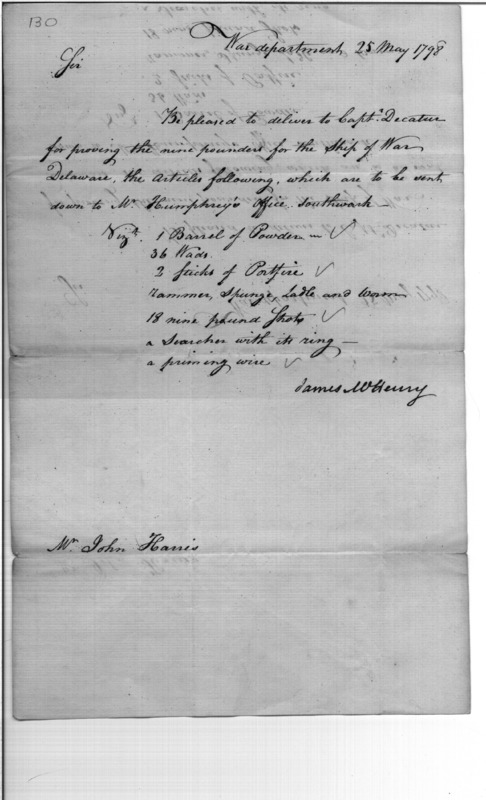 130
War department 25 May 1798
Sir
Be pleased to deliver to Capt. Decatur
for proving the nine pounders for the Ship of War
Delaware, the Articles following, which are to be sent
down to Mr Humphrey's office Southwark—
Vizt. 1 Barrel of Powder
36 Wads
2 Sticks of Portfire
rammer, Spunge, Ladle and worm
18 nine pound Shots
a Searcher with its ring—
a priming wire
James McHenry
Mr John Harris